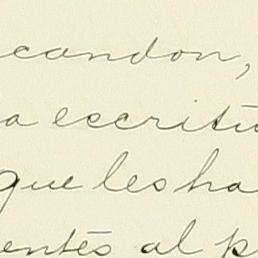 candon,
a escritu
que les ha
entes al p